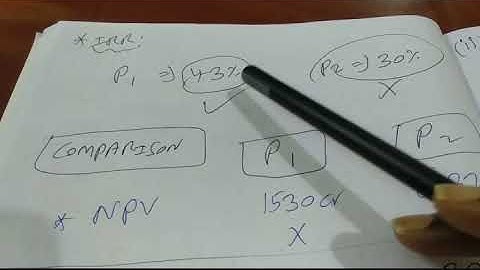 * IRR: (i)
P1 => 43% P2 => 30%
✓ X
COMPARISON P1 P2
* NPV 1530 cr
X